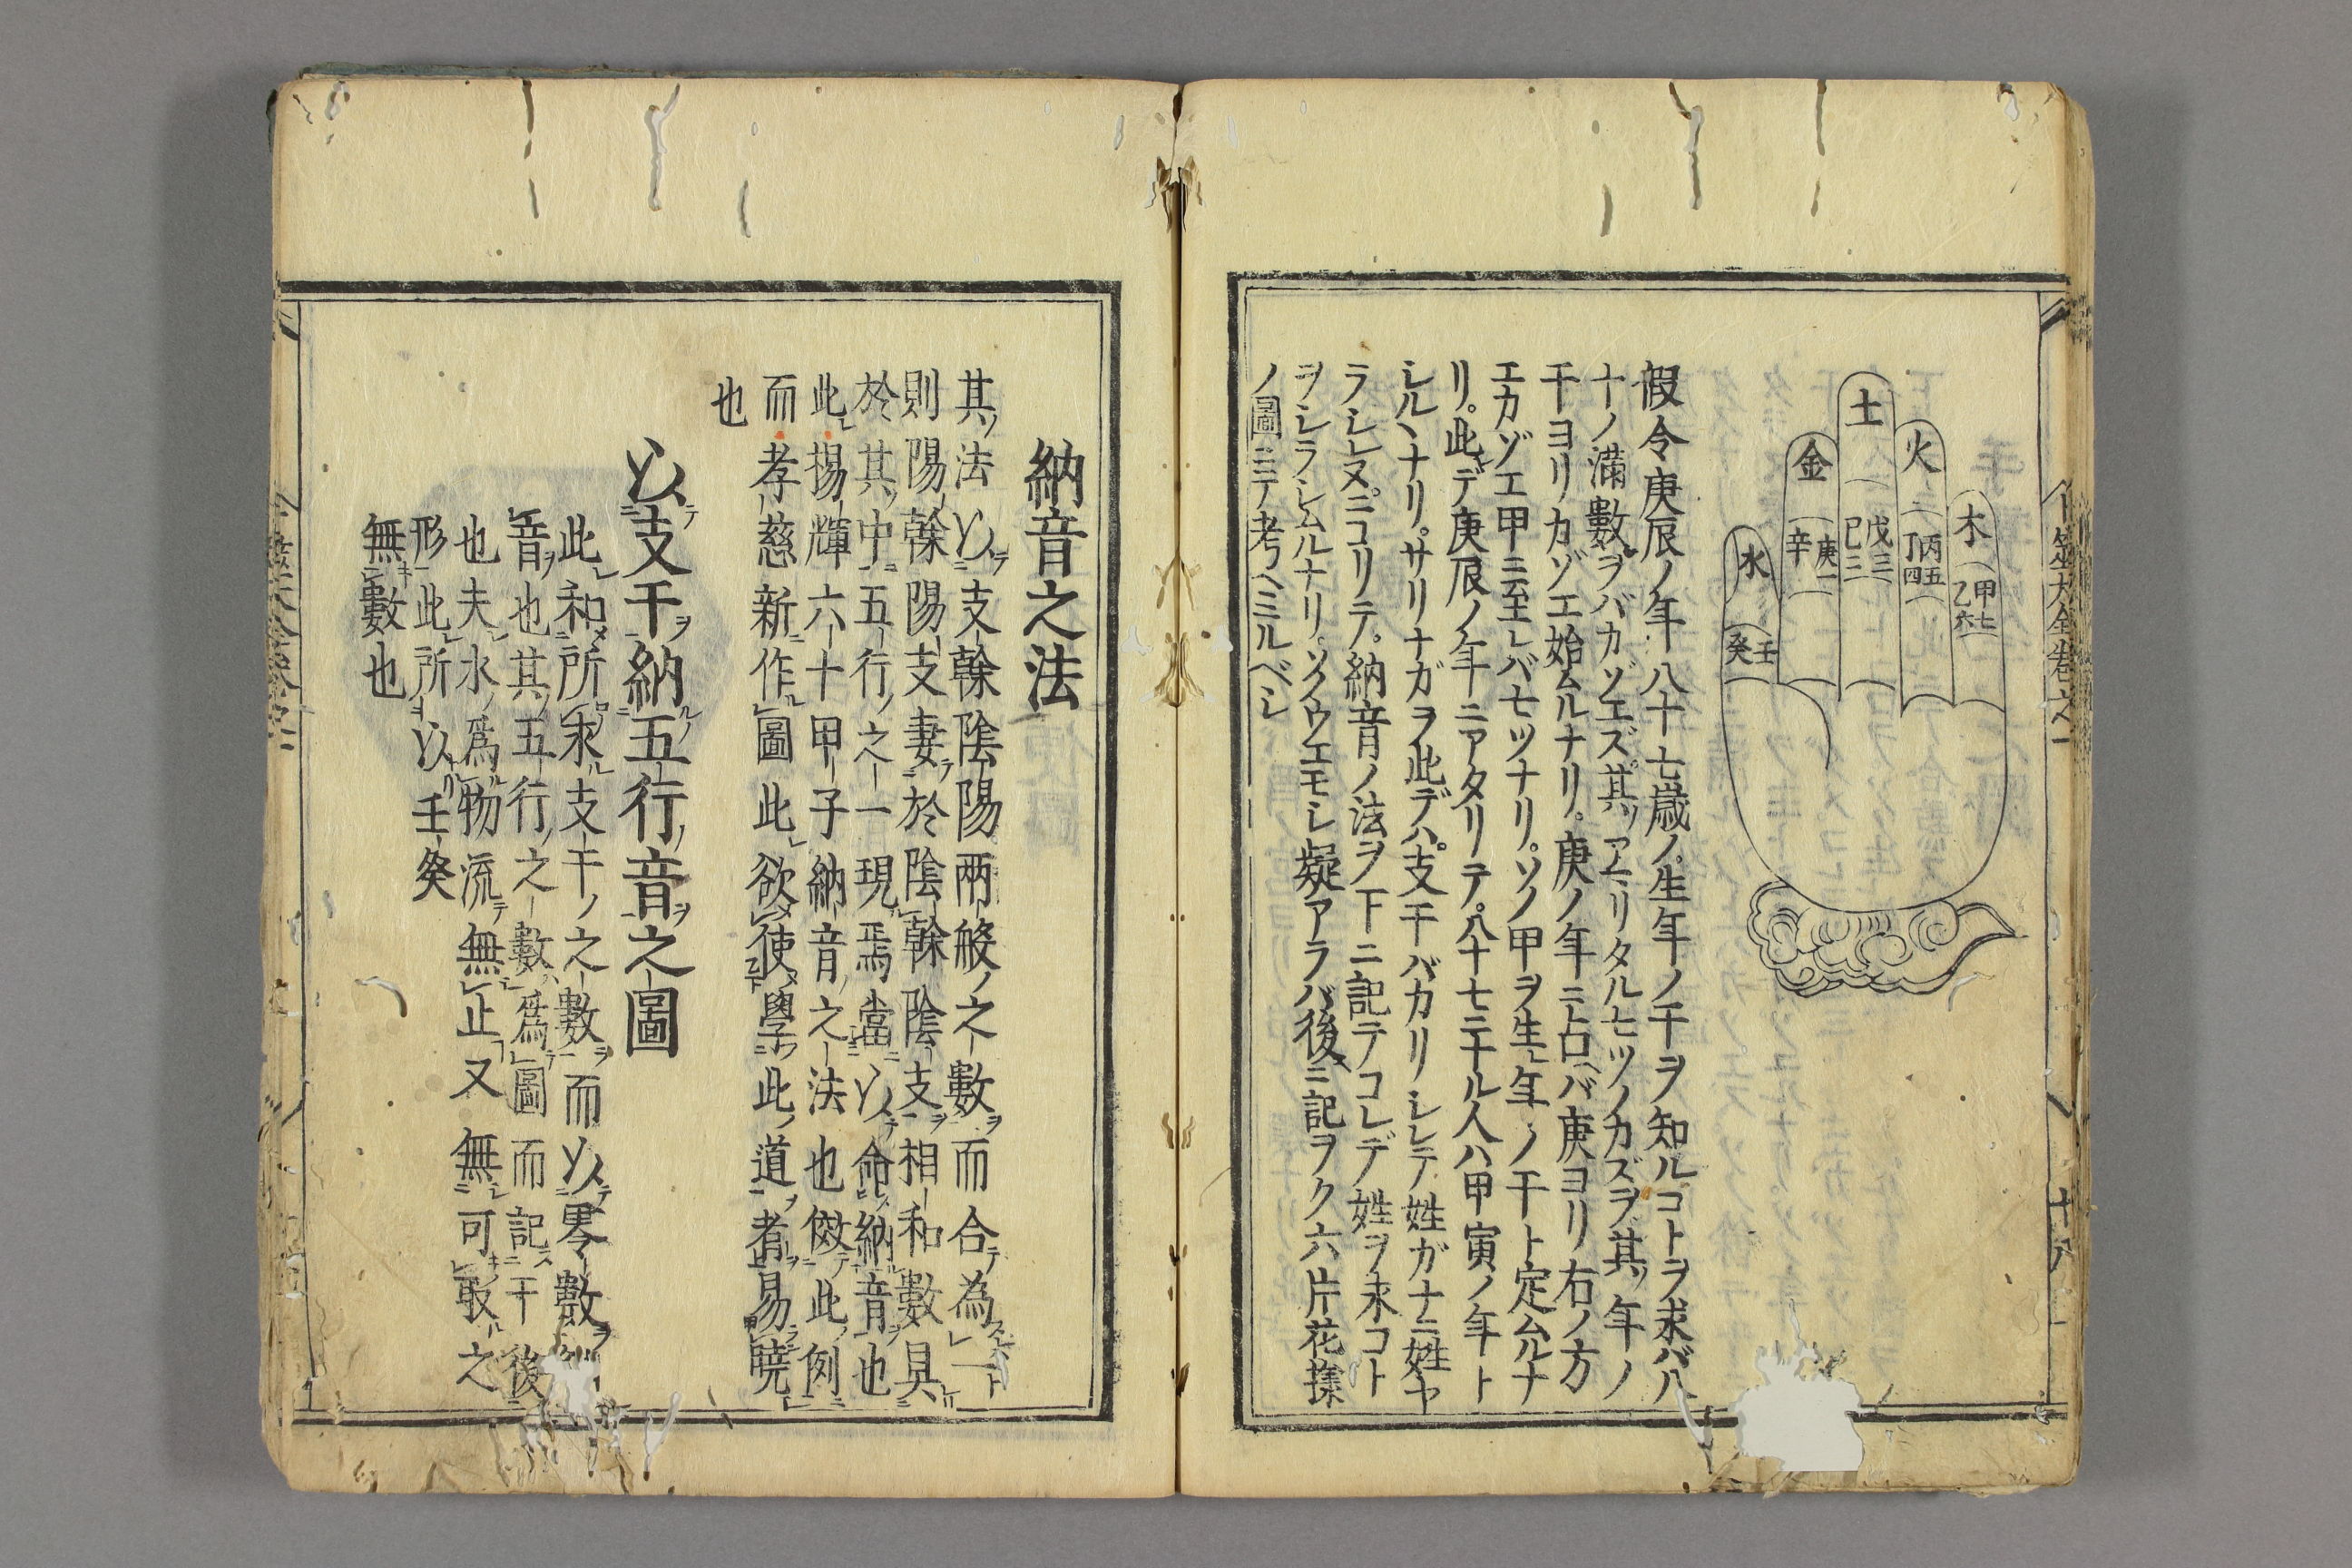 木
甲七
乙六
火
丙五
丁四
土
戊三
己二
金
庚一
辛
水
壬
癸
假令庚辰ノ年八十七歳ノ生年ノ干ヲ知ルコトヲ求バ八
十ノ滿數ヲバカゾエズ其ノアマリタル七ツノカズヲ其ノ年ノ
干ヨリカゾエ始ムルナリ。庚ノ年ニ占ヘバ庚ヨリ右ノ方
エカゾエ甲ニ至レバ七ツナリ。ソノ甲ヲ生レ年ノ干ト定ムルナ
リ。此レデ庚辰ノ年ニアタリテ。八十七ニナル人ハ甲寅ノ年ト
シルヽナリ。サリナガヲ此デハ支干バカリシレテ姓ガナニ姓ヤ
ラシレヌニヨリテ。納音ノ法ヲ下ニ記テコレデ姓ヲ求コト
ヲシラシムルナリ。ソノウエモシ疑アラバ後ニ記ヲク六片花樣
ノ圖ニテ考ヘミルベシ
十八
納音之法
其ノ法以テ支-幹陰陽兩-般ノ之-數ヲ而合テ為一ト
則陽-幹陽-支妻ラ於陰-幹陰-支ヲ相-和數具
於其ノ中ニ五-行ノ之-一現焉當ニ以テ命納音ヲ也
此レ揚-輝六-十甲-子納-音ノ之-法也倣テ此ノ例ニ
而孝-慈新ニ作ル圖此レ欲使學此ノ道ヲ者ヲ易曉
也
以テ支干ヲ納ルノ五行ノ音ヲ之圖
此レ和所求ル支-干ノ之-數ヲ而以テ零-數ヲ
音ヲ也其ノ五-行ノ之-數為圖而記ス干後ニ
也夫レ水ノ為ル物流テ無止又無可キ取ル之
形此レ所以壬-癸
無キ數也